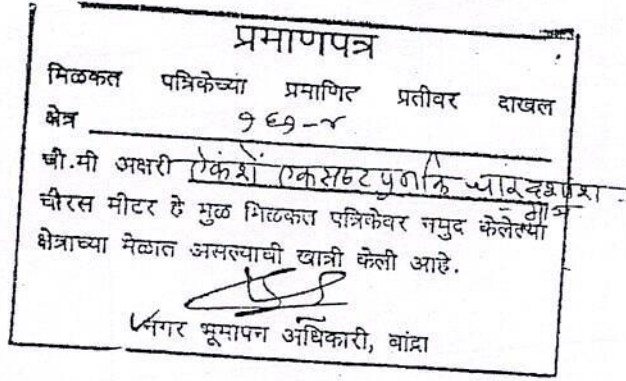 प्रमाणपत्र
मिळकत पत्रिकेच्या प्रमाणित प्रतीवर दाखल
क्षेत्र १६१-४
चौ.मी अक्षरी एकशें एकसष्ट पुर्णांक चार दशांश
मात्र
चौरस मीटर हे मुळ मिळकत पत्रिकेवर नमुद केलेल्या
क्षेत्राच्या मेळात असल्याची खात्री केली आहे.
नगर भूमापन अधिकारी, बांद्रा